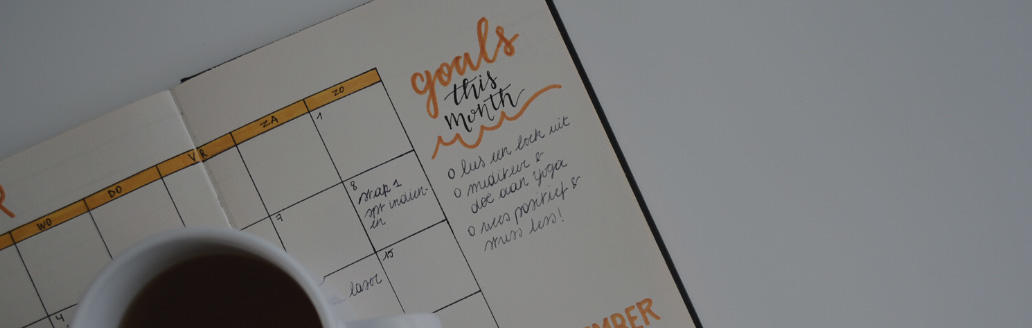 goals
this
month
o lees een boek uit
o mediteer &
doe aan yoga
o wees positief &
stress less!
R
WO
DO
VR
ZA
ZO
1
8
stap 1
spt indien-
en
7
15
lasor
4
MBER